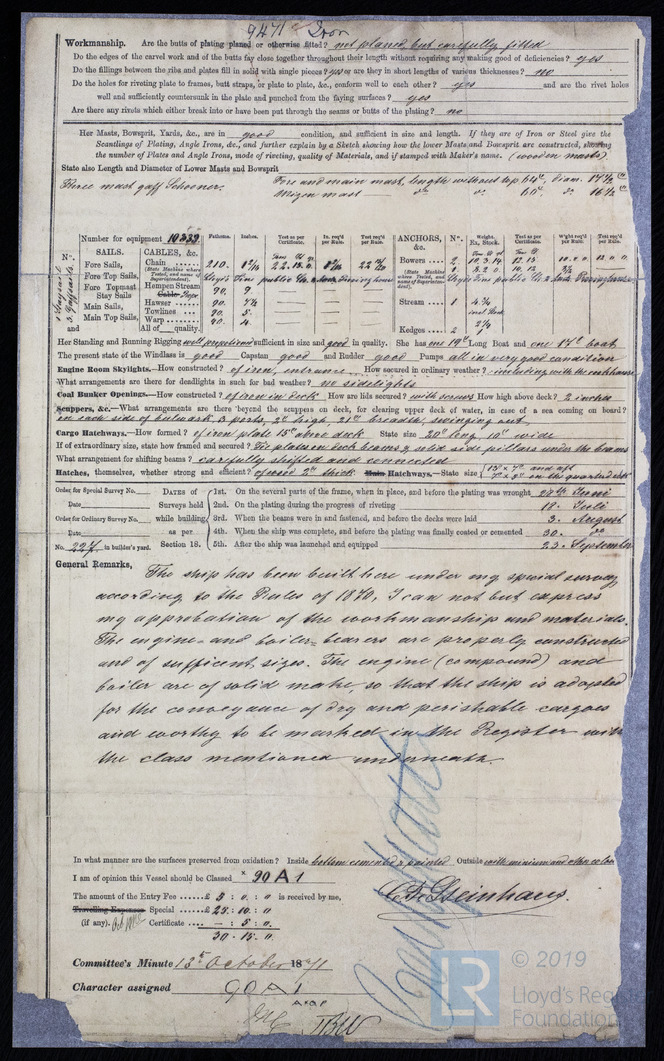 9471 Iron
Workmanship. Are the butts of plating planed or otherwise fitted? not planed but carefully fitted
Do the edges of the carvel work and of the butts fay close together throughout their length without requiring any making good of deficiencies? yes
Do the fillings between the ribs and plates fill in solid with single pieces? yes or are they in short lengths of various thicknesses? no
Do the holes for riveting plate to frames, butt straps, or plate to plate, &c., conform well to each other? yes and are the rivet holes
well and sufficiently countersunk in the plate and punched from the faying surfaces? yes
Are there any rivets which either break into or have been put through the seams or butts of the plating? no
Her Masts, Bowsprit, Yards, &c., are in good condition, and sufficient in size and length. If they are of Iron or Steel give the
Scantlings of Plating, Angle Irons, &c., and further explain by a Sketch showing how the lower Masts and Bowsprit are constructed, showing
the number of Plates and Angle Irons, mode of riveting, quality of Materials, and if stamped with Maker's name. (wooden masts)
State also Length and Diameter of Lower Masts and Bowsprit
Three mast gaff Schooner. Fore and main mast, length without top 64', diam. 17 1/2
Mizen mast do. do. 60'. do. 16 1/2
Number for equipment 10333
Fathoms. Inches. Test as per Certificate. In. req'd per Rule. Test req'd per Rule. ANCHORS, &c. No. Weight. Ex. Stock. Test as per Certificate. W'ght req'd per Rule. Test req'd per Rule.
No. SAILS. CABLES, &c.
Fore Sails, Chain 210.
(State Machine where Tested, and name of Superintendent).
Bowers 2
Fore Top Sails,
Fore Topmast Stay Sails
Hempen Stream Cable 90. 9.
Main Sails, Hawser 90. 7 1/2
Stream 1 4 3/4
Main Top Sails, Towlines 90. 5.
Warp 90. 4.
and All of quality. Kedges 2
Her Standing and Running Rigging well proportioned sufficient in size and good in quality. She has one 19' Long Boat and one 17' boat
The present state of the Windlass is good Capstan good and Rudder good Pumps all in very good condition
Engine Room Skylights.—How constructed? of iron, entrance How secured in ordinary weather? including with the cookhouse
What arrangements are there for deadlights in such for bad weather? no sidelights
Coal Bunker Openings.—How constructed? of iron in deck How are lids secured? with screws How high above deck? 2 inches
Scuppers, &c.—What arrangements are there beyond the scuppers on deck, for clearing upper deck of water, in case of a sea coming on board?
in each side of bulwark 3 ports, 2' high, 21" breadth, swinging out.
Cargo Hatchways.—How formed? of iron plate 15" above deck State size 20' long 10' wide
If of extraordinary size, state how framed and secured? Tie plates on deck beams & solid side pillars under the beams
What arrangement for shifting beams? carefully shifted and connected
Hatches, themselves, whether strong and efficient? of wood 2" thick Main Hatchways.—State size 15' × 7' and aft 7' × 5' on the quarterdeck
Order for Special Survey No. DATES of 1st. On the several parts of the frame, when in place, and before the plating was wrought 27th Juni
Date Surveys held 2nd. On the plating during the progress of riveting 18. Juli
Order for Ordinary Survey No. while building 3rd. When the beams were in and fastened, and before the decks were laid 3. August
Date as per 4th. When the ship was complete, and before the plating was finally coated or cemented 30. do.
No. 227 in builder's yard. Section 18. 5th. After the ship was launched and equipped 23. September
General Remarks, The ship has been built here under my special survey
according to the Rules of 1870, I can not but express
my approbation of the workmanship and materials.
The engine- and boiler-bearers are properly constructed
and of sufficient sizes. The engine (compound) and
boiler are of solid make, so that the ship is adopted
for the conveyance of dry and perishable cargoes
and worthy to be marked in the Register with
the class mentioned underneath.
In what manner are the surfaces preserved from oxidation? Inside bottom cemented & painted Outside with minium and other color
I am of opinion this Vessel should be Classed × 90 A 1
The amount of the Entry Fee £ 5 : 0 : " is received by me,
C. F. Steinhaus.
Travelling Expenses Special £ 25 : 10 : "
(if any). Certificate — : 5 : ".
30 . 15 . "
Committee's Minute 13th October 1871
Character assigned 90 A 1
LR
© 2019
Lloyd's Register
Foundation